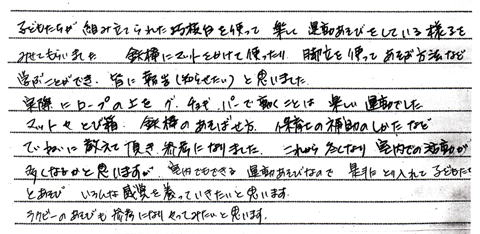 子どもたちが 組み立てられた巧技台を使って 楽しく運動あそびをしている様子を
みせてもらいました。 鉄棒にマットをかけて使ったり、脚立を使ってあそぶ方法など
学ぶことができ、皆に報告(知らせたい)と思いました。
実際にロープの上を グ、チョキ パーで動くことは 楽しい運動でした
マットやとび箱、鉄棒のあそばせ方、保育士の補助のしかたなど
ていねいに教えて頂き、参考になりました。これから寒くなり 室内での活動が
多くなるかと思いますが、室内でもできる 運動あそびなので 是非とり入れて子どもたち
とあそび いろんな感覚を養っていきたいと思います。
ラグビーのあそびも 参考になり やってみたいと思います。